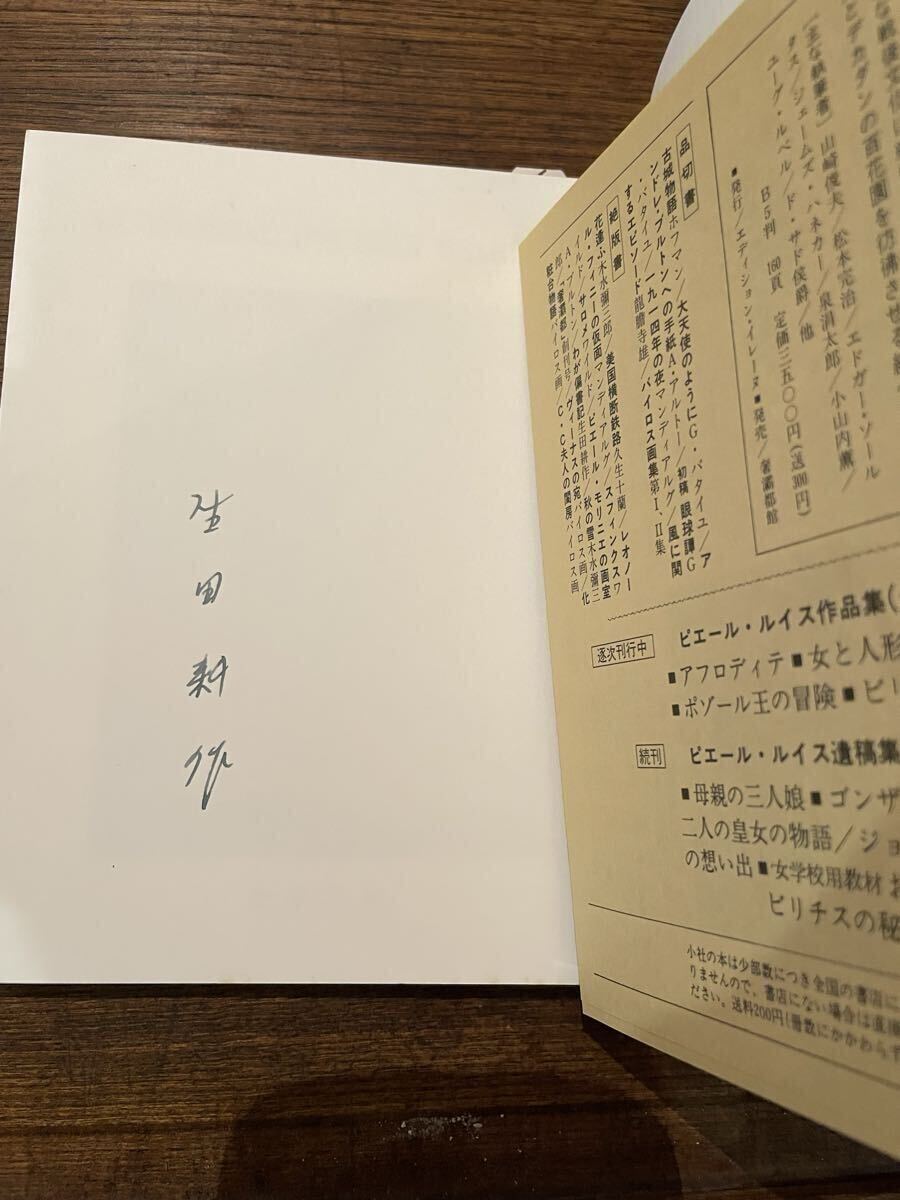 生田耕作
とデカダンの百花園を彷彿させる
〔主な執筆者〕山崎俊夫／松本完治／エドガー・ソール
タス／ジェームズ・ハネカー／泉涓太郎／小山内薫／
ユーグ・ルベル／ド・サド侯爵／他
B5判 160頁 定価三五〇〇円(送300円)
■発行／エディション・イレーヌ■発売／奢灞都館
品切書
古城物語ホフマン／大天使のようにG・バタイユ／ア
ンドレ・ブルトンへの手紙A・アルトー／初稿 眼球譚G
・バタイユ／一九一四年の夜マンディアルグ／風に関
するエピソード龍膽寺雄／バイロス画集第Ⅰ、Ⅱ集
絶版書
花違ふ木水彌三郎／美国横断鉄路久生十蘭／レオノー
ル・フィニーの仮面マンディアルグ／スフィンクスワ
イルド／サロメワイルド／ピエール・モリニエの画室
A・ブルトン／わが偏書記生田耕作／秋の雪木水彌三
郎／「奢灞都」創刊号／ヴィーナスの宛バイロス画／化
粧台物語バイロス画／C・C夫人の閨房バイロス画
逐次刊行中
ピエール・ルイス作品集(
■アフロディテ■女と人形
■ポゾール王の冒険■ビ
続刊
ピエール・ルイス遺稿集
■母親の三人娘■ゴンザ
二人の皇女の物語／ジョ
の想い出■女学校用教材 お
ビリチスの秘
小社の本は少部数につき全国の書店に
りませんので、書店にない場合は直接
ださい。送料200円(冊数にかかわらず